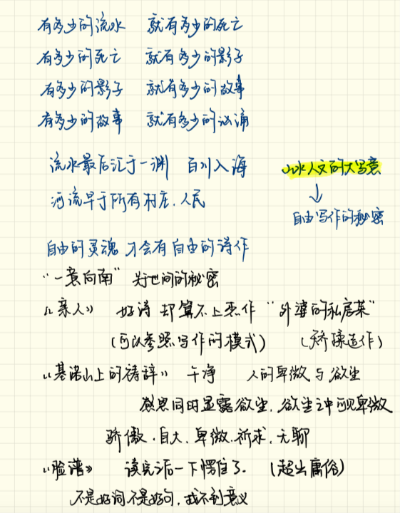 有多少的流水 就有多少的死亡
有多少的死亡 就有多少的影子
有多少的影子 就有多少的故事
有多少的故事 就有多少的传诵
流水最后汇于一渊 百川入海
山水人文的大写意
河流早于所有村庄、人民
自由写作的秘密
自由的灵魂 才会有自由的诗作
“一意向南” 世间的秘密
《亲人》 好诗 却算不上杰作 “外婆的私房菜”
(可以参照写作的模式) (矫揉造作)
《基诺山上的祷辞》 干净 人的卑微与欲望
感恩同时显露欲望,欲望之中可见卑微
骄傲、自大、卑微、祈求、无聊
《脸谱》 读完后一下愣住了. (超出庸俗)
不是好词不是好句,找不到意义